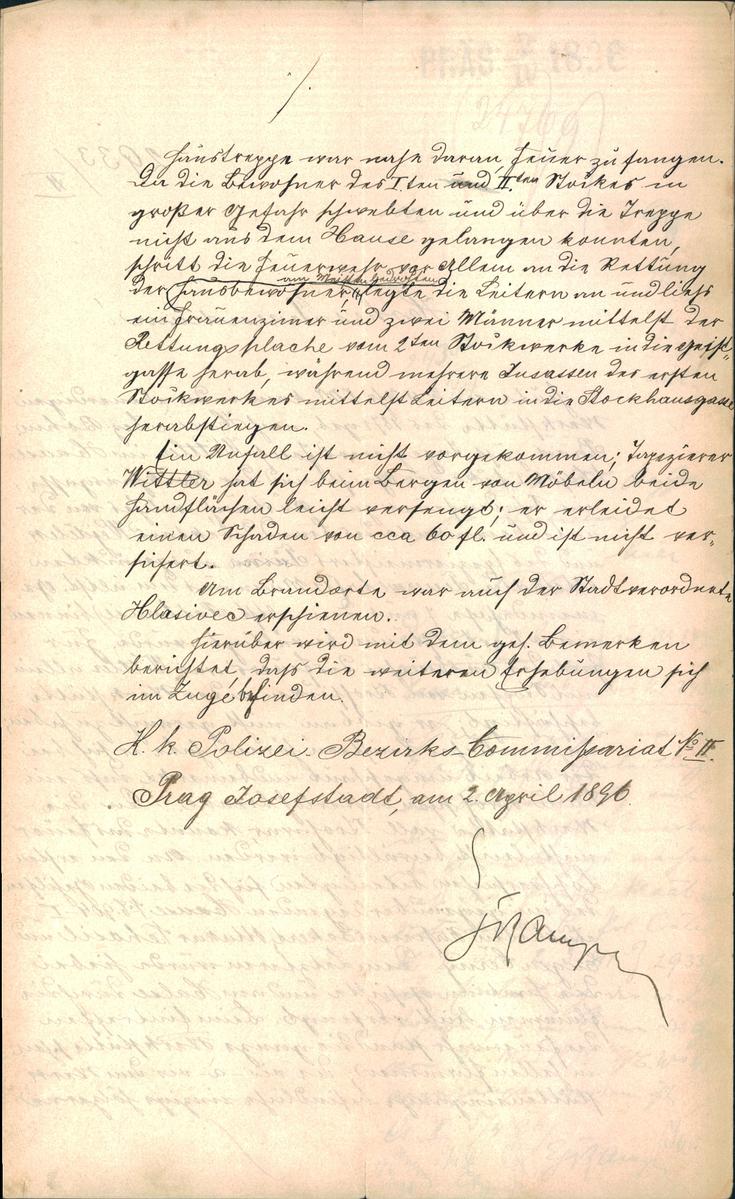 Haustreppe war nahe daran, Feuer zu fangen.
Da die Bewohner des I.ten und II.ten Stockes in
großer Gefahr schwebten und über die Treppe
nicht aus dem Hause gelangen konnten,
schritt die Feuerwehr vor Allem an die Rettung
am Meisten bedrohten
der Hausbewohner, legte die Leitern an und ließ
ein Frauenzimer und zwei Männer mittelst der
Rettungsplache vom 2ten Stockwerke in die Geist-
gasse herab, während mehrere Insassen des ersten
Stockwerkes mittelst Leitern in die Stockhausgasse
herabstiegen.
Ein Unfall ist nicht vorgekommen; Tapezierer
Wittler hat sich beim Bergen von Möbeln beide
Handflächen leicht versengt; er erleidet
einen Schaden von cca 60 fl. und ist nicht ver-
sichert.
Am Brandorte war auch der Stadtverordnete
Hlasivec erschienen.
Hierüber wird mit dem geh. Bemerken
berichtet, daß die weiteren Erhebungen sich
im Zuge befinden.
K. k. Polizei-Bezirks-Commissariat No II.
Prag Josefstadt, am 2. April 1896.